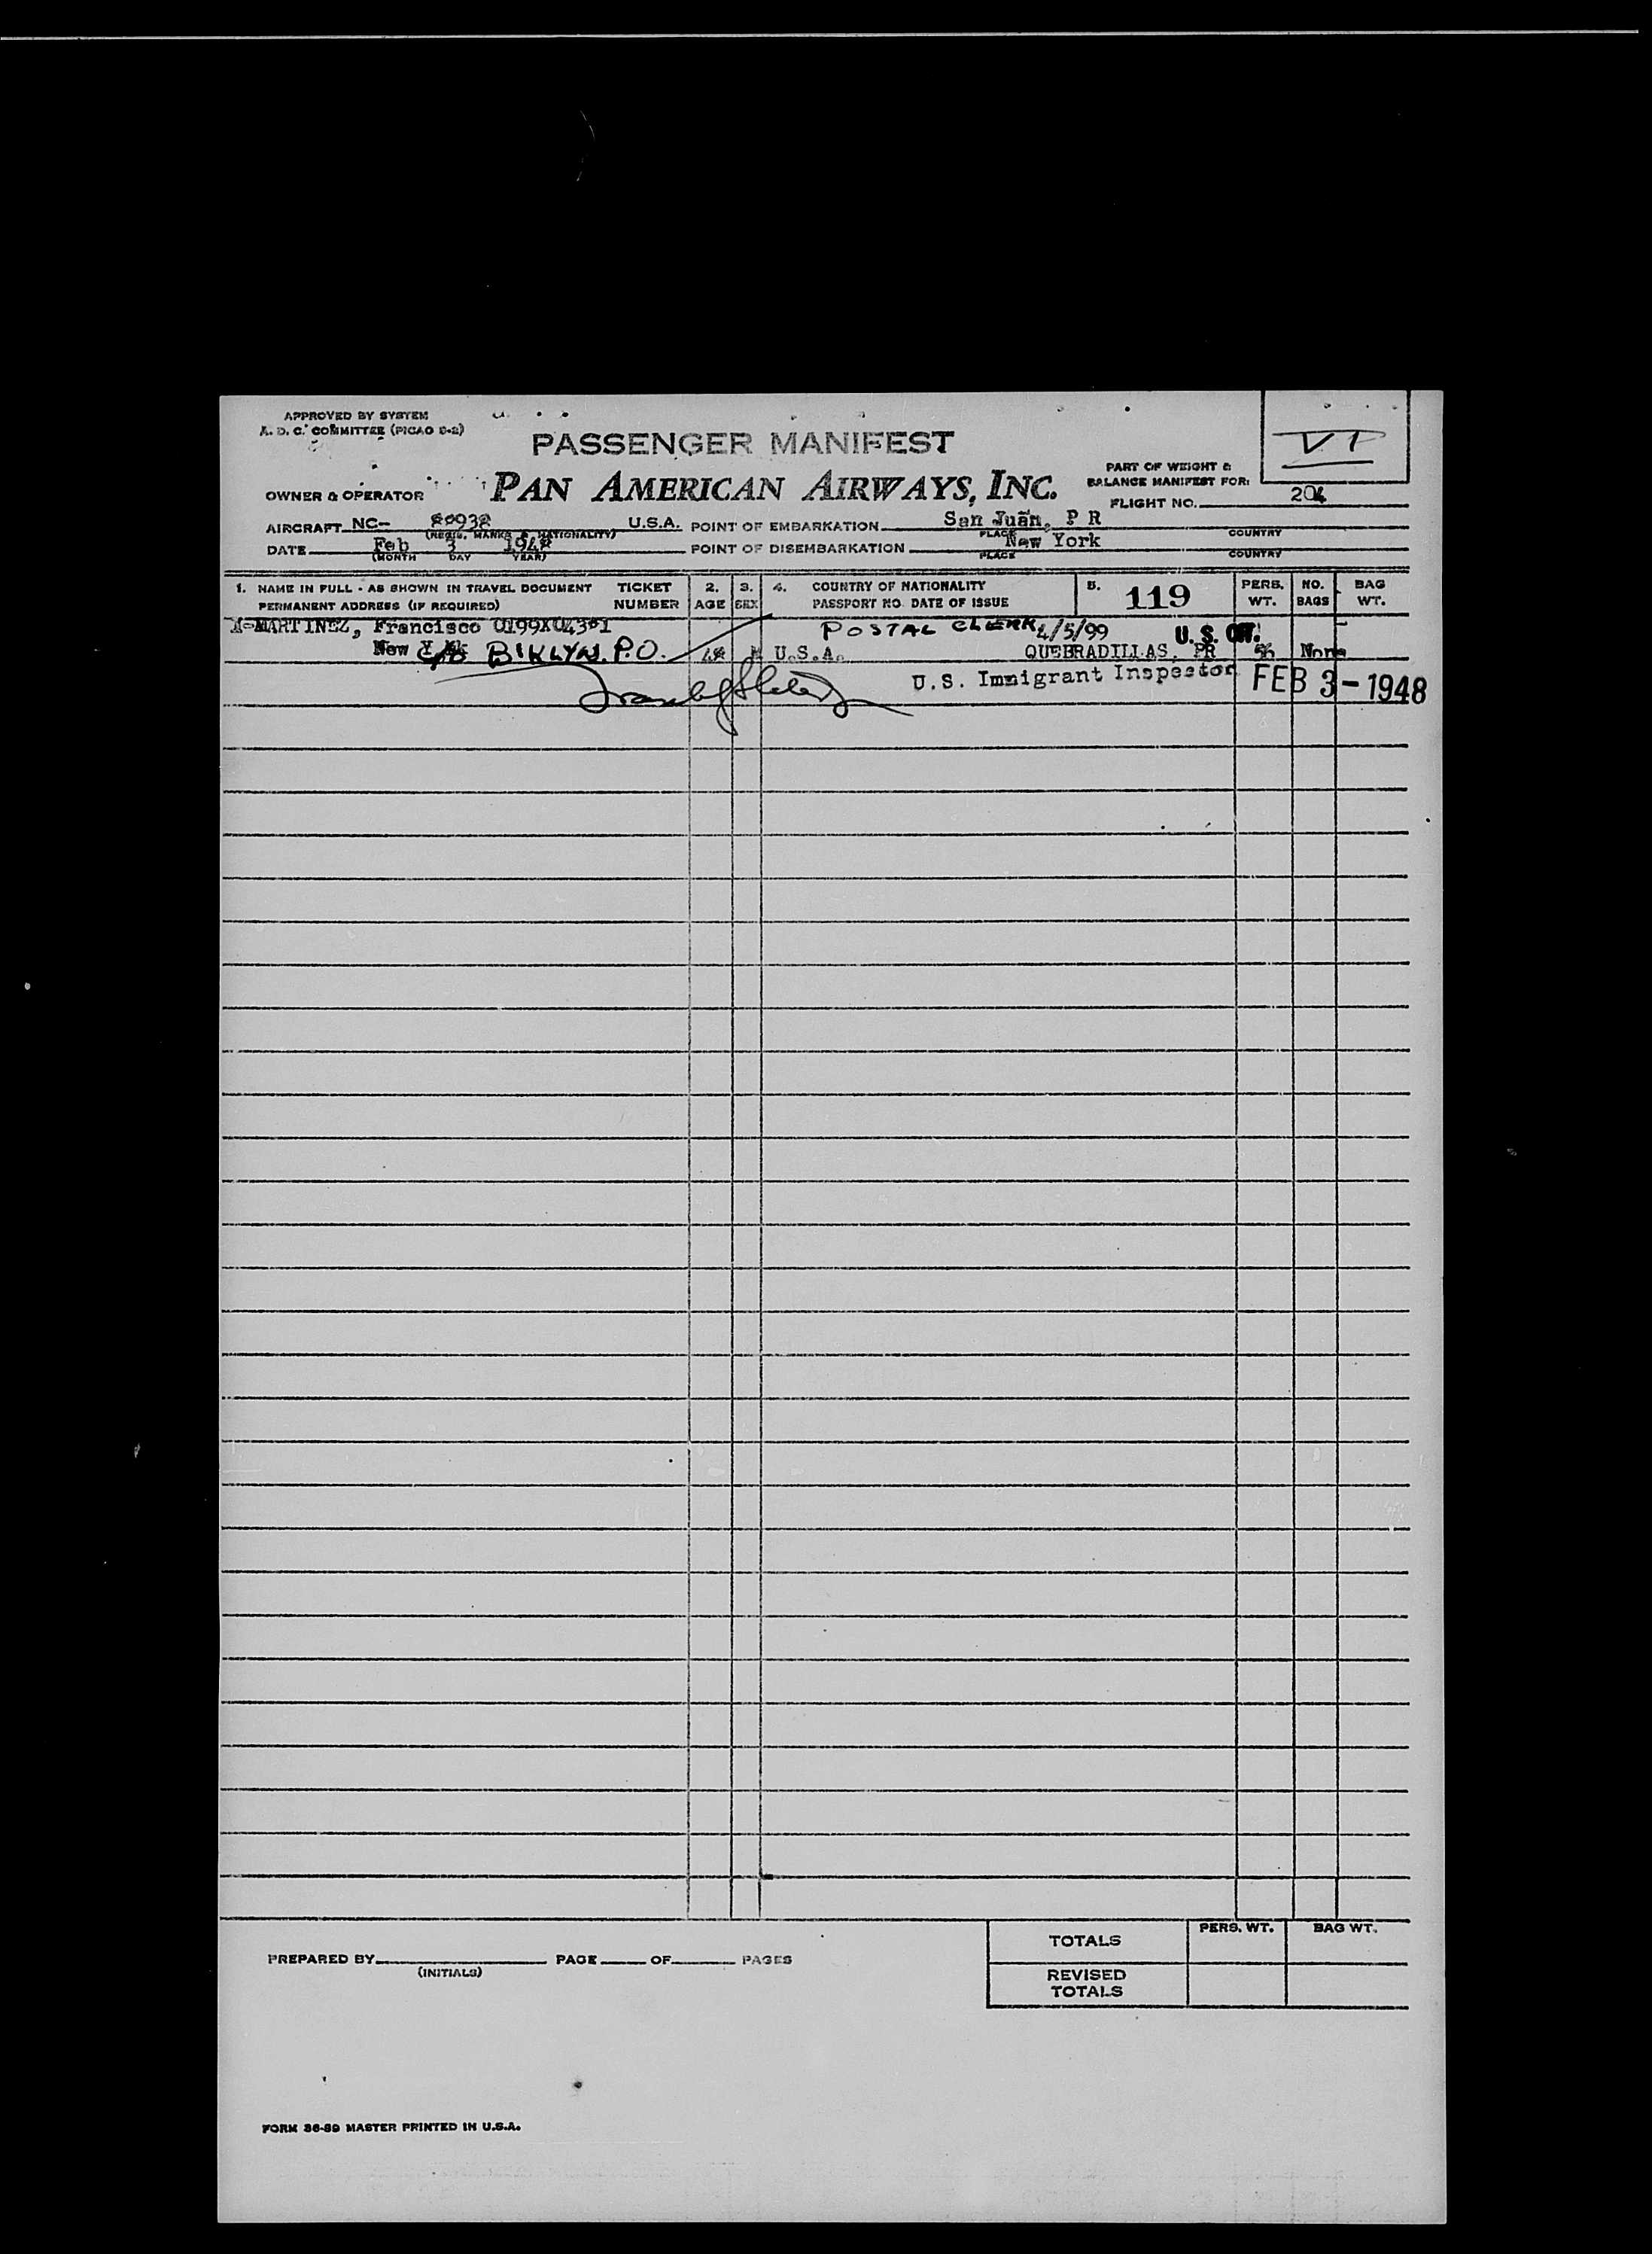 APPROVED BY SYSTEM
A. D. C. COMMITTEE (PICAO 5-2)
PASSENGER MANIFEST
VI
PART OF WEIGHT &
BALANCE MANIFEST FOR:
OWNER & OPERATOR PAN AMERICAN AIRWAYS, INC.
FLIGHT NO. 204
AIRCRAFT NC- U.S.A. POINT OF EMBARKATION San Juan, P R
(REGIS. MARKS & NATIONALITY) PLACE COUNTRY
DATE Feb 3 1948 POINT OF DISEMBARKATION New York
(MONTH DAY YEAR) PLACE COUNTRY
1. NAME IN FULL - AS SHOWN IN TRAVEL DOCUMENT TICKET 2. 3. 4. COUNTRY OF NATIONALITY 5. 119 PERS. NO. BAG
PERMANENT ADDRESS (IF REQUIRED) NUMBER AGE SEX PASSPORT NO. DATE OF ISSUE WT. BAGS WT.
MARTINEZ, Francisco POSTAL CLERK 4/5/99 U. S. CIT.
New c/o B'KLYN. P.O. 48 M U.S.A. QUEBRADILLAS, PR None
U.S. Immigrant Inspector FEB 3-1948
PERS. WT. BAG WT.
TOTALS
PREPARED BY PAGE OF PAGES
(INITIALS)
REVISED
TOTALS
FORM 36-59 MASTER PRINTED IN U.S.A.